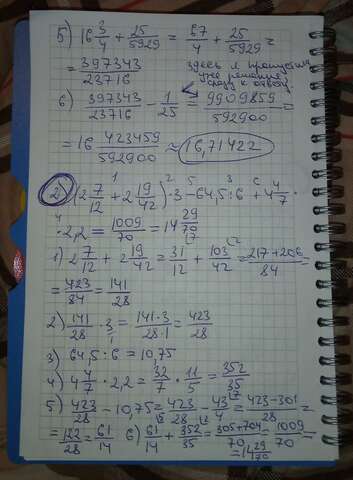 5) 16 3/4 + 25/5929 = 67/4 + 25/5929 =
= 397343/23716
здесь я пропустил
уже решение
сразу к ответу.
6) 397343/23716 - 1/25 = 9909859/592900 =
= 16 423459/592900 ≈ 16,71422
2) (2 7/12 + 2 19/42) · 3 - 64,5 : 6 + 4 4/7 ·
· 2,2 = 1009/70 = 14 29/70
1) 2 7/12 + 2 19/42 = 31/12 + 103/42 = 217+206/84 =
= 423/84 = 141/28
2) 141/28 · 3/1 = 141·3/28·1 = 423/28
3) 64,5 : 6 = 10,75
4) 4 4/7 · 2,2 = 32/7 · 11/5 = 352/35
5) 423/28 - 10,75 = 423/28 - 43/4 = 423-301/28 =
= 122/28 = 61/14 6) 61/14 + 352/35 = 305+704/70 = 1009/70 =
= 14 29/70